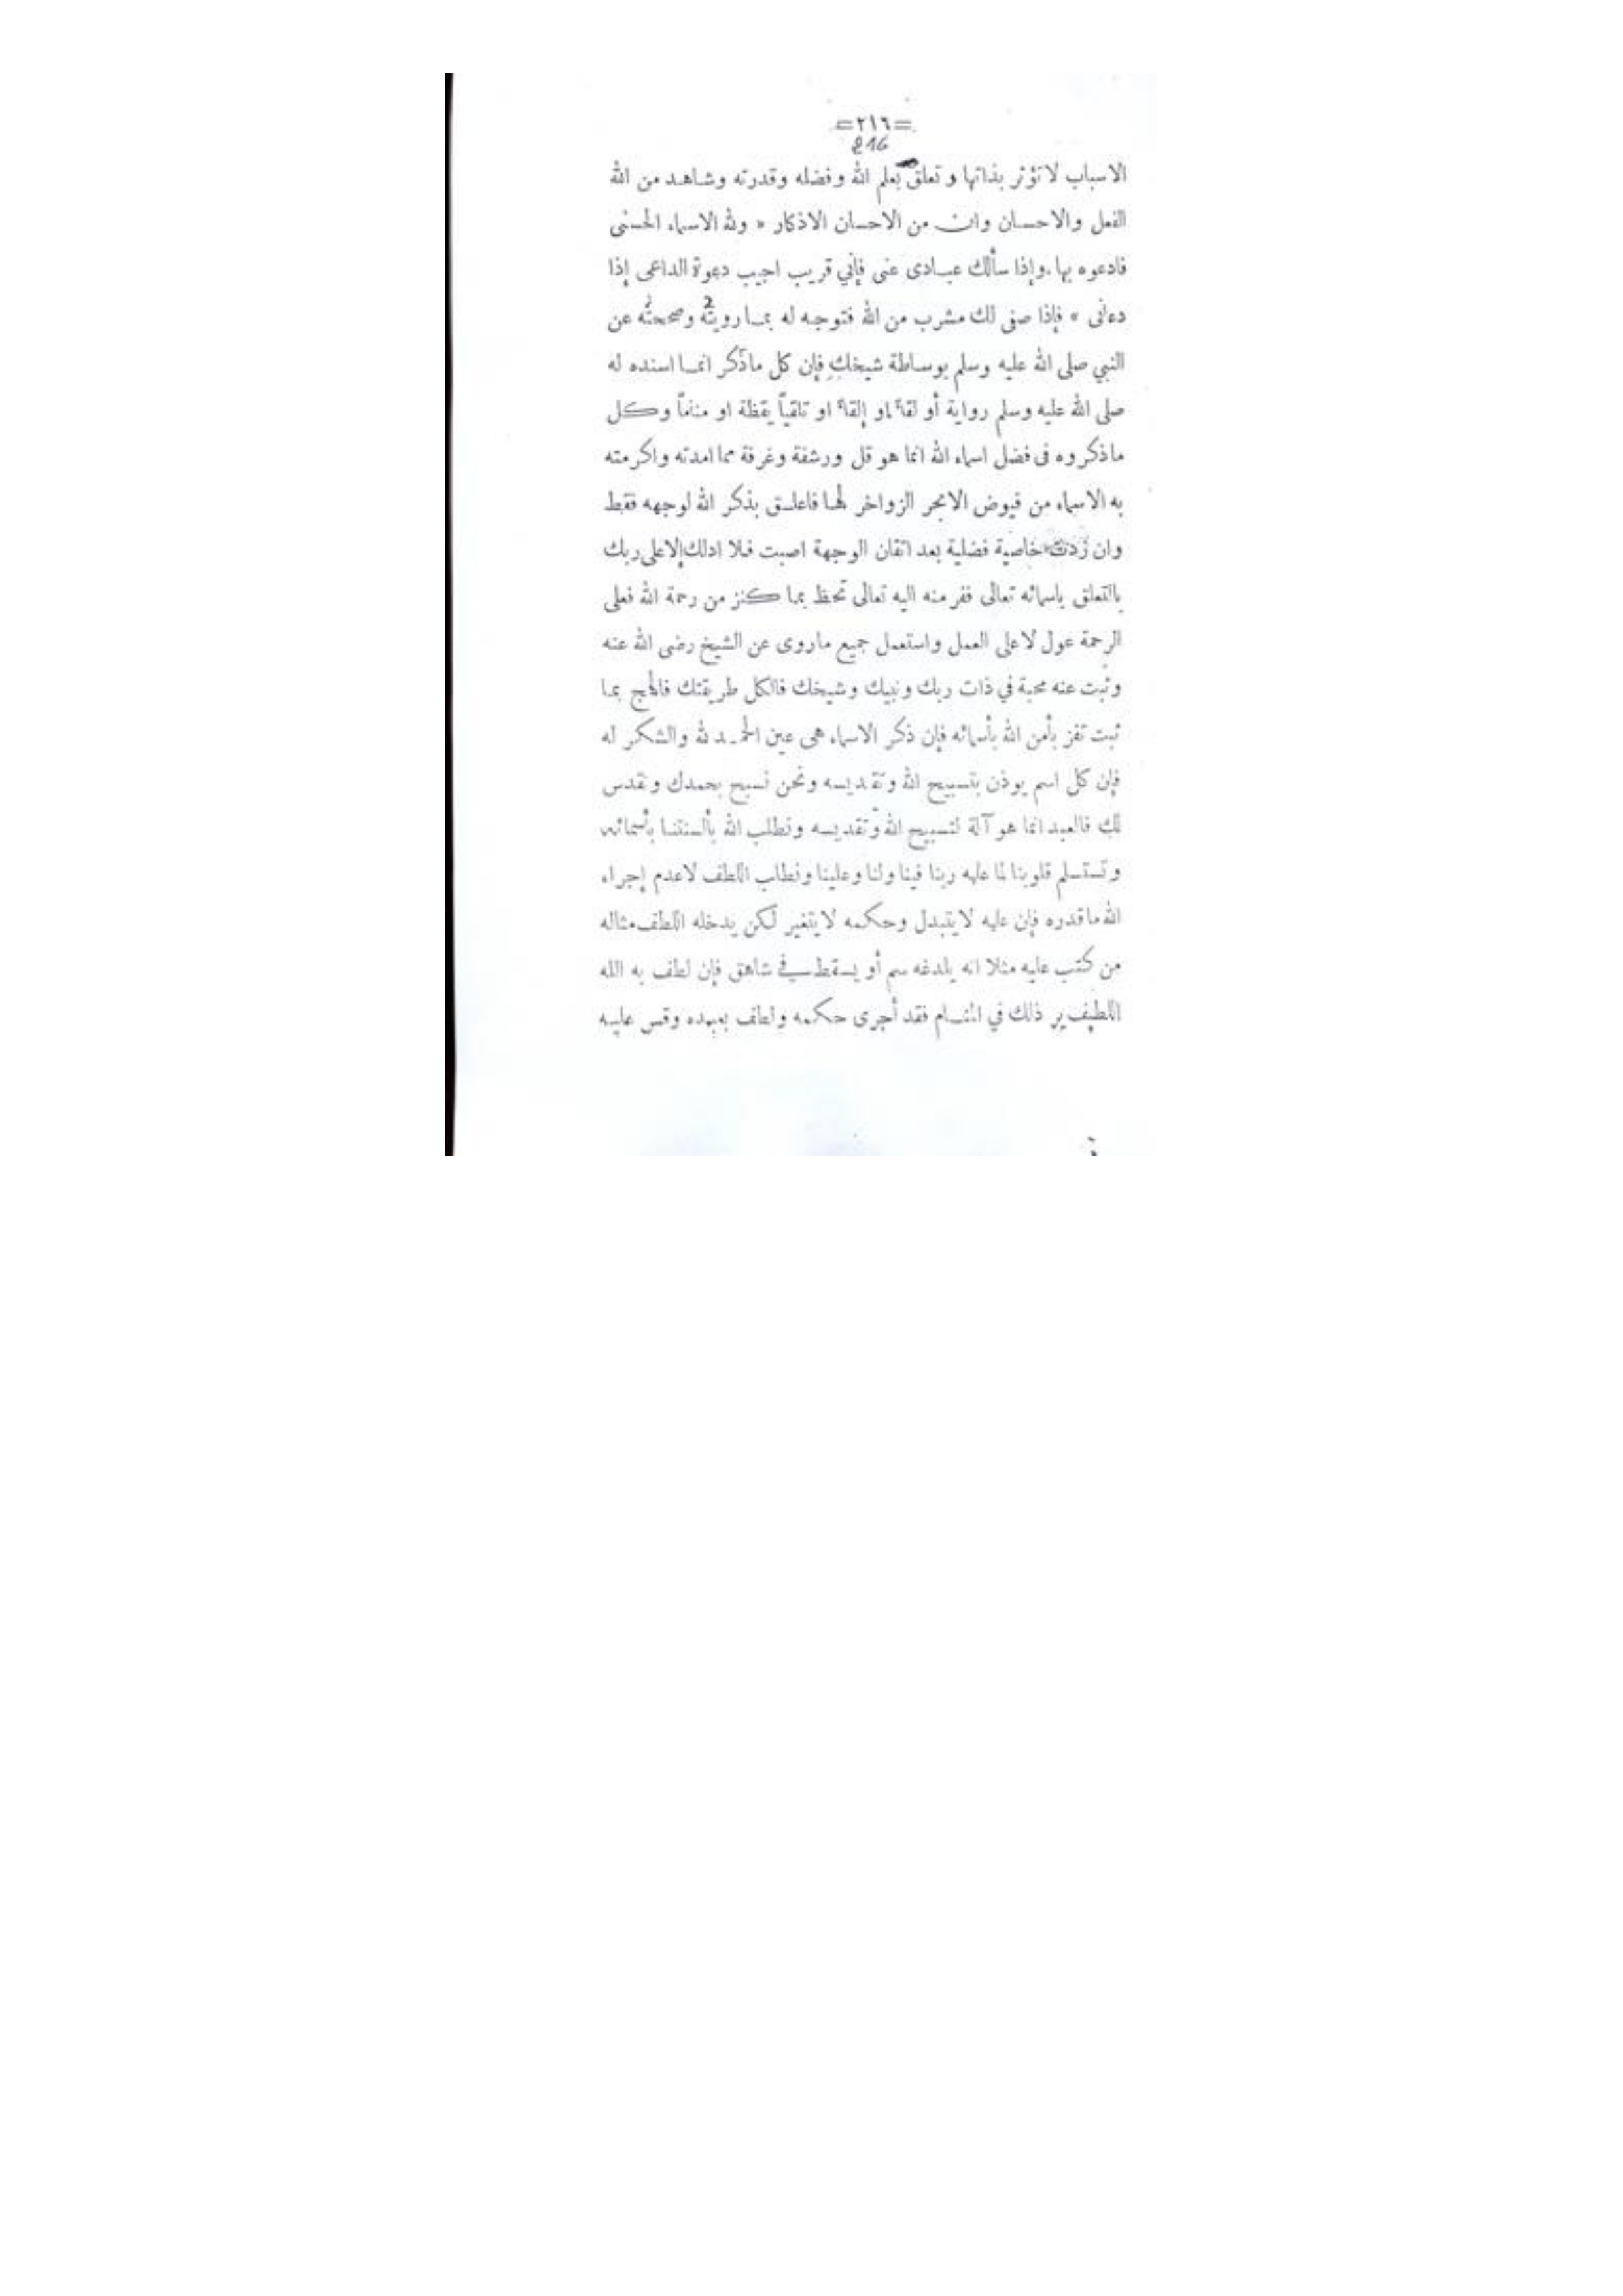 =٢١٦=
216
الاسباب لا تؤثر بذاتها وتعلق بعلم الله وفضله وقدرته وشاهد من الله
الفعل والاحسان وان من الاحسان الاذكار « ولله الاسماء الحسنى
فادعوه بها ، وإذا سألك عبادى عنى فإني قريب اجيب دعوة الداعى إذا
دعانى » فإذا صفى لك مشرب من الله فتوجه له بما رويته وصححته عن
النبي صلى الله عليه وسلم بوساطة شيخك فإن كل ماذكر انما اسنده له
صلى الله عليه وسلم رواية أو لقاءً او إلقاءً او تلقياً يقظة او مناماً وكل
ماذكروه فى فضل اسماء الله انما هو قل ورشفة وغرفة مما امدته واكرمته
به الاسماء من فيوض الابحر الزواخر لها فاعلق بذكر الله لوجهه فقط
وان زدت خاصية فضلية بعد اتقان الوجهة اصبت فلا ادلك إلا على ربك
بالتعلق باسمائه تعالى ففر منه اليه تعالى تحظ بما كنز من رحمة الله فعلى
الرحمة عول لا على العمل واستعمل جميع ماروى عن الشيخ رضى الله عنه
وثبت عنه محبة في ذات ربك ونبيك وشيخك فالكل طريقتك فالهج بما
ثبت تفز بأمن الله بأسمائه فإن ذكر الاسماء هى عين الحمد لله والشكر له
فإن كل اسم يوذن بتسبيح الله وتقديسه ونحن نسبح بحمدك ونقدس
لك فالعبد انما هو آلة لتسبيح الله وتقديسه ونطلب الله بألسنتنا بأسمائه
وتستسلم قلوبنا لما عليه ربنا فينا ولنا وعلينا ونطلب اللطف لا عدم إجراء
الله ماقدره فإن علمه لا يتبدل وحكمه لا يتغير لكن يدخله اللطف مثاله
من كتب عليه مثلا انه يلدغه سم أو يسقط في شاهق فإن لطف به الله
اللطيف ير ذلك في المنام فقد أجرى حكمه ولطف بعبده وقس عليه